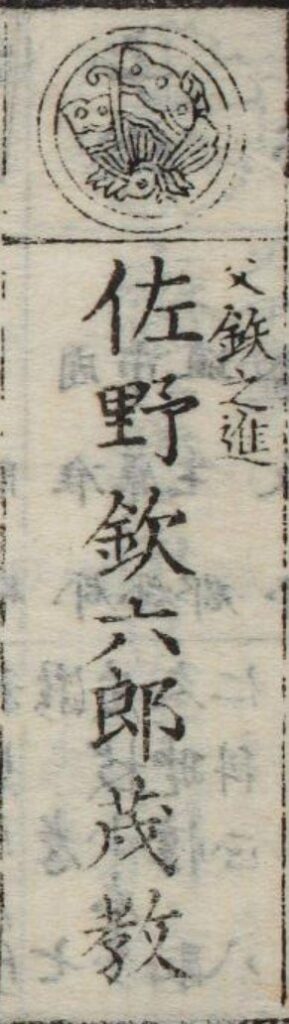 父鉄之進
佐野欽六郎茂教